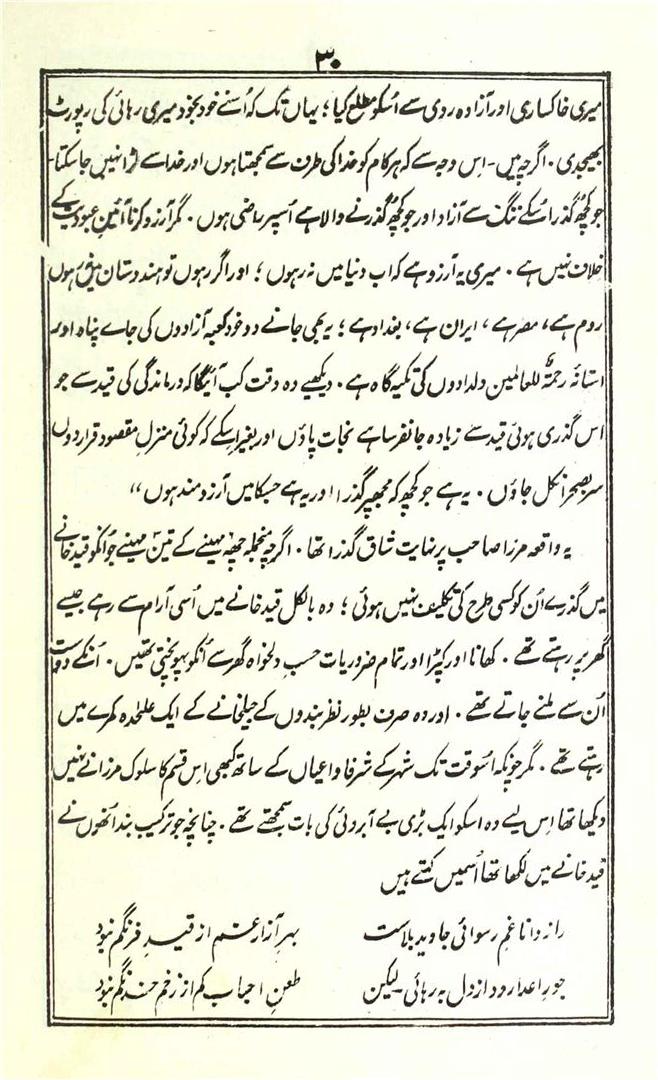 ۳۰
میری خاکساری اور آزادہ روی سے اُسکو مطلع کیا؛ یہاں تک کہ اُسنے خود بخود میری رہائی کی رپورٹ
بھیجدی۔ اگرچہ میں - اس وجہ سے کہ ہر کام کو خدا کی طرف سے سمجھتا ہوں اور خدا سے لڑا نہیں جا سکتا -
جو کچھ گذرا اُسکے ننگ سے آزاد اور جو کچھ گذرنے والا ہے اُسپر راضی ہوں۔ مگر آرزو کرنا آئینِ عبودیت کے
خلاف نہیں ہے۔ میری یہ آرزو ہے کہ اب دنیا میں نہ رہوں؛ اور اگر رہوں تو ہندوستان میں نہ رہوں
روم ہے، مصر ہے، ایران ہے، بغداد ہے؛ یہ بھی جانے دو خود کعبہ آزادوں کی جاے پناہ اور
آستانۂ رحمۃٌ للعالمین دلدادوں کی تکیہ گاہ ہے۔ دیکھیے وہ وقت کب آئیگا کہ درماندگی کی قید سے جو
اس گذری ہوئی قید سے زیادہ جانفرسا ہے نجات پاؤں اور بغیر اِسکے کہ کوئی منزلِ مقصود قرار دوں
سر بصحرا نکل جاؤں۔ یہ ہے جو کچھ کہ مجھپر گذرا اور یہ ہے جسکا میں آرزومند ہوں“
یہ واقعہ مرزا صاحب پر نہایت شاق گذرا تھا۔ اگرچہ منجملہ چھہ مہینے کے تین مہینے جو اُنکو قید خانے
میں گذرے اُن کو کسی طرح کی تکلیف نہیں ہوئی؛ وہ بالکل قید خانے میں اُسی آرام سے رہے جیسے
گھر پر رہتے تھے۔ کھانا اور کپڑا اور تمام ضروریات حسبِ دلخواہ گھر سے اُنکو پہونچتی تھیں۔ اُنکے دوست
اُن سے ملنے جاتے تھے۔ اور وہ صرف بطور نظربندوں کے جیلخانے کے ایک علٰحدہ کمرے میں
رہتے تھے۔ مگر چونکہ اُسوقت تک شہر کے شرفا و اعیان کے ساتھ کبھی اِس قسم کا سلوک مرزا نے نہیں
دیکھا تھا اِس لیے وہ اسکو ایک بڑی بے آبروئی کی بات سمجھتے تھے۔ چنانچہ جو ترکیب بند اُنھوں نے
قید خانے میں لکھا تھا اُسمیں کہتے ہیں
راز دانا غمِ رسوائی جاوید بلاست    بہرِ آزار غم از قیدِ فرنگم نبود
جورِ اعدا رود از دل بہ رہائی لیکن    طعنِ احباب کم از زخمِ خدنگم نبود